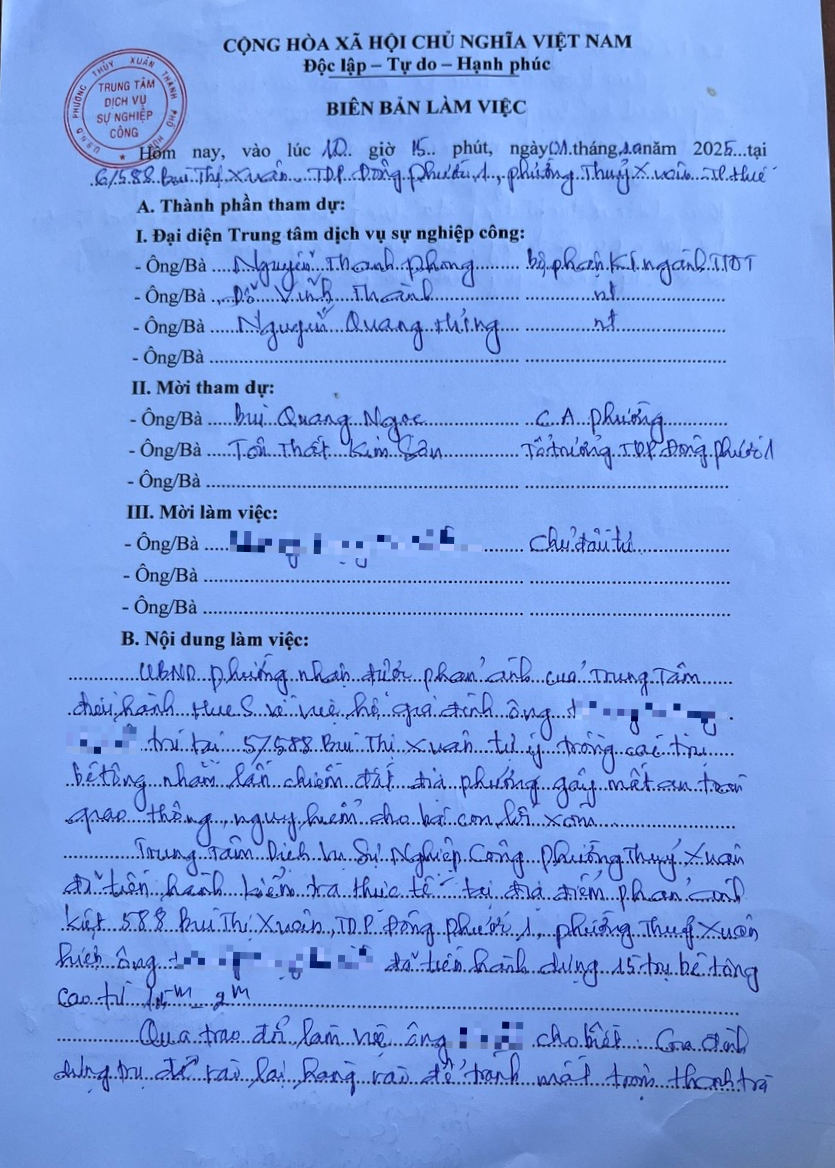 CỘNG HÒA XÃ HỘI CHỦ NGHĨA VIỆT NAM
Độc lập – Tự do – Hạnh phúc
U.B.N.D PHƯỜNG THỦY XUÂN THÀNH PHỐ HUẾ
TRUNG TÂM
DỊCH VỤ
SỰ NGHIỆP
CÔNG
BIÊN BẢN LÀM VIỆC
Hôm nay, vào lúc 10 giờ 15 phút, ngày 01 tháng 10 năm 2025 tại
6/588 Bùi Thị Xuân TDP Đông Phước 1, phường Thuỷ Xuân TP Huế
A. Thành phần tham dự:
I. Đại diện Trung tâm dịch vụ sự nghiệp công:
- Ông/Bà Nguyễn Thanh Phong bộ phận
- Ông/Bà Đỗ Vĩnh Thành nt
- Ông/Bà Nguyễn Quang nt
- Ông/Bà
II. Mời tham dự:
- Ông/Bà Bùi Quang Ngọc C.A phường
- Ông/Bà Tôn Thất Kim Sân Tổ trưởng TDP Đông Phước 1
- Ông/Bà
III. Mời làm việc:
- Ông/Bà chủ đầu tư
- Ông/Bà
- Ông/Bà
B. Nội dung làm việc:
UBND phường nhận được phản ánh của Trung Tâm
điều hành HueS về việc hộ gia đình ông
trú tại 57/588 Bùi Thị Xuân tự ý trồng các trụ
bê tông nhằm lấn chiếm đất địa phương gây mất an toàn
giao thông, nguy hiểm cho bà con lối xóm
Trung Tâm Dịch Vụ Sự Nghiệp Công phường Thuỷ Xuân
đã tiến hành kiểm tra thực tế tại địa điểm phản ánh
kiệt 588 Bùi Thị Xuân, TDP Đông Phước 1, phường Thuỷ Xuân
hiện ông đã tiến hành dựng 15 trụ bê tông
cao từ 1,5m - 2m
Qua trao đổi làm việc ông cho biết Gia đình
dựng trụ để rào lại hàng rào để tránh mất trộm thanh trà